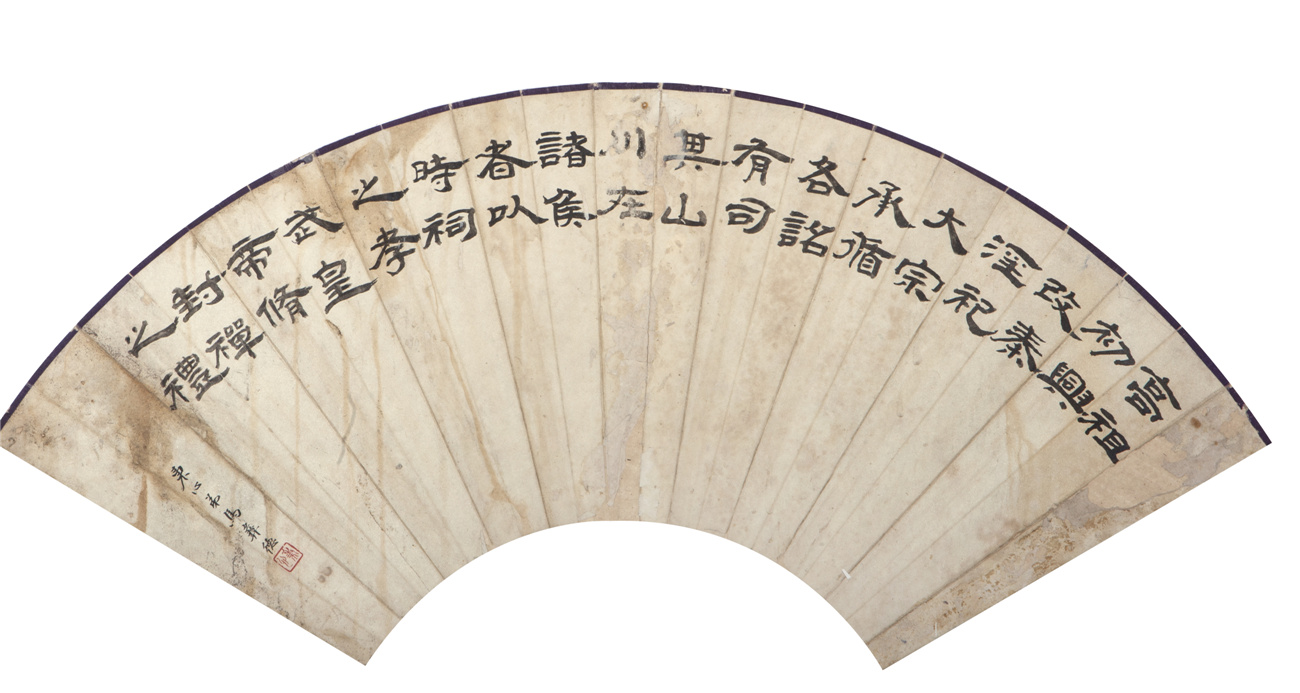 高祖
初興
改秦
淫祀
大宗
承循
各詔
有司
其山
川在
諸侯
者以
時祠
之孝
武皇
帝脩
封禪
之禮
弟馬彝德